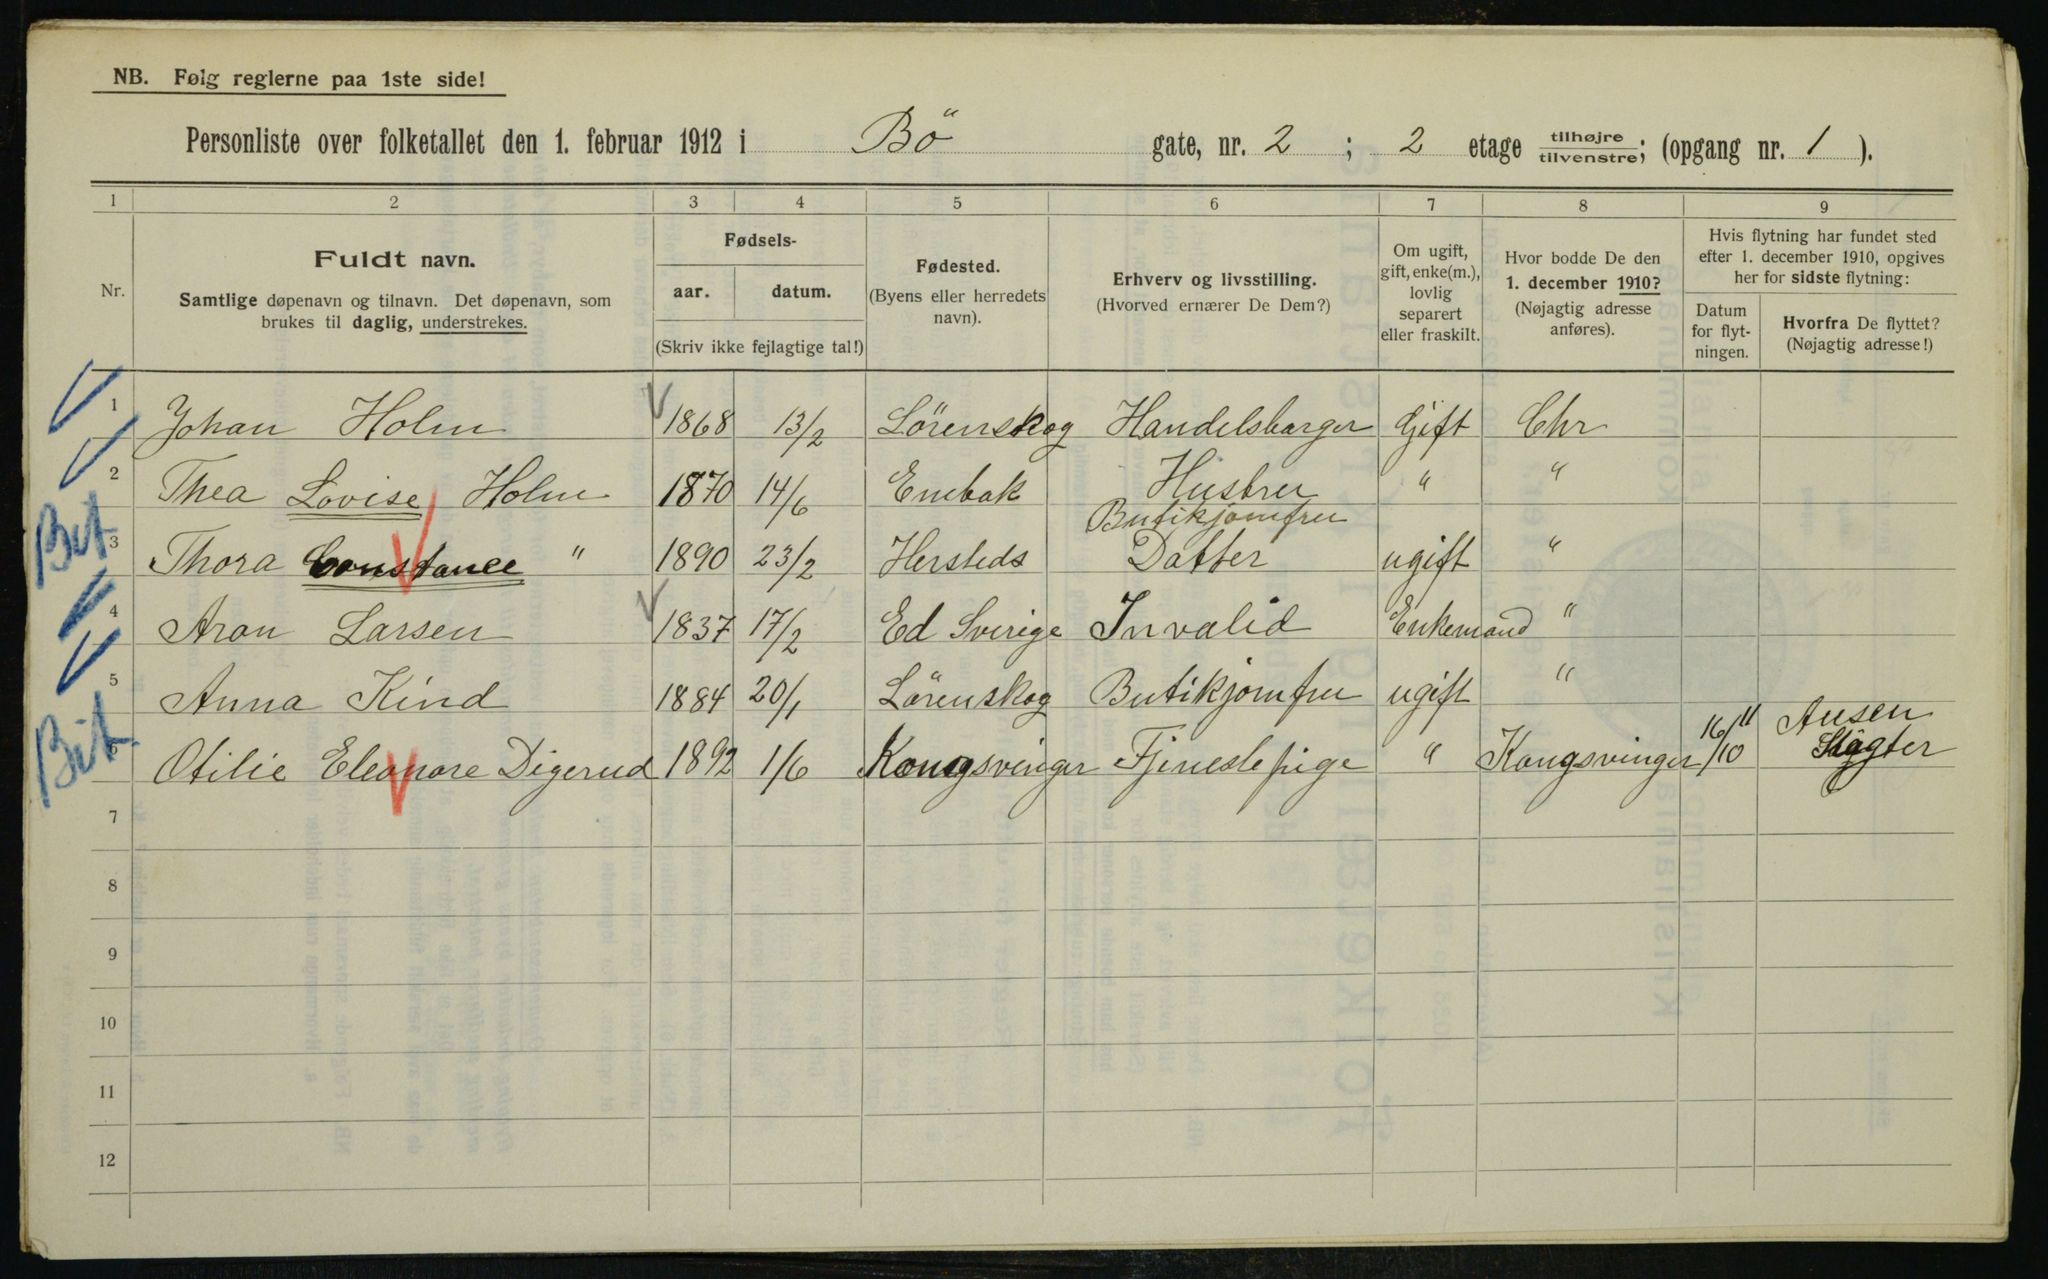 NB. Følg reglerne paa 1ste side!
Personliste over folketallet den 1. februar 1912 i Bö gate, nr. 2 ; 2 etage tilhøjre/tilvenstre; (opgang nr. 1 ).
1 2 3 4 5 6 7 8 9
Nr.
Fuldt navn.
Samtlige døpenavn og tilnavn. Det døpenavn, som
brukes til daglig, understrekes.
Fødsels-
aar. datum.
(Skriv ikke fejlagtige tal!)
Fødested.
(Byens eller herredets
navn).
Erhverv og livsstilling.
(Hvorved ernærer De Dem?)
Om ugift,
gift, enke(m.),
lovlig
separert
eller fraskilt.
Hvor bodde De den
1. december 1910?
(Nøjagtig adresse
anføres).
Hvis flytning har fundet sted
efter 1. december 1910, opgives
her for sidste flytning:
Datum
for flyt-
ningen.
Hvorfra De flyttet?
(Nøjagtig adresse!)
1 Johan Holm 1868 13/2 Lörenskog Handelsbarger Gift Chr
2 Thea Lovise Holm 1870 14/6 Enebak Hustru " "
Butikjomfru
But 3 Thora Constance " 1890 23/2 Hersteds Datter ugift "
4 Aron Larsen 1837 17/2 Ed Sverige Invalid Enkemand "
5 Anna Kind 1884 20/1 Lörenskog Butikjomfru ugift "
But 6 Otilie Eleonore Digerud 1892 1/6 Kongsvinger Fjenestepige " Kongsvinger 16/10 11 Ausen
Slagter
7
8
9
10
11
12